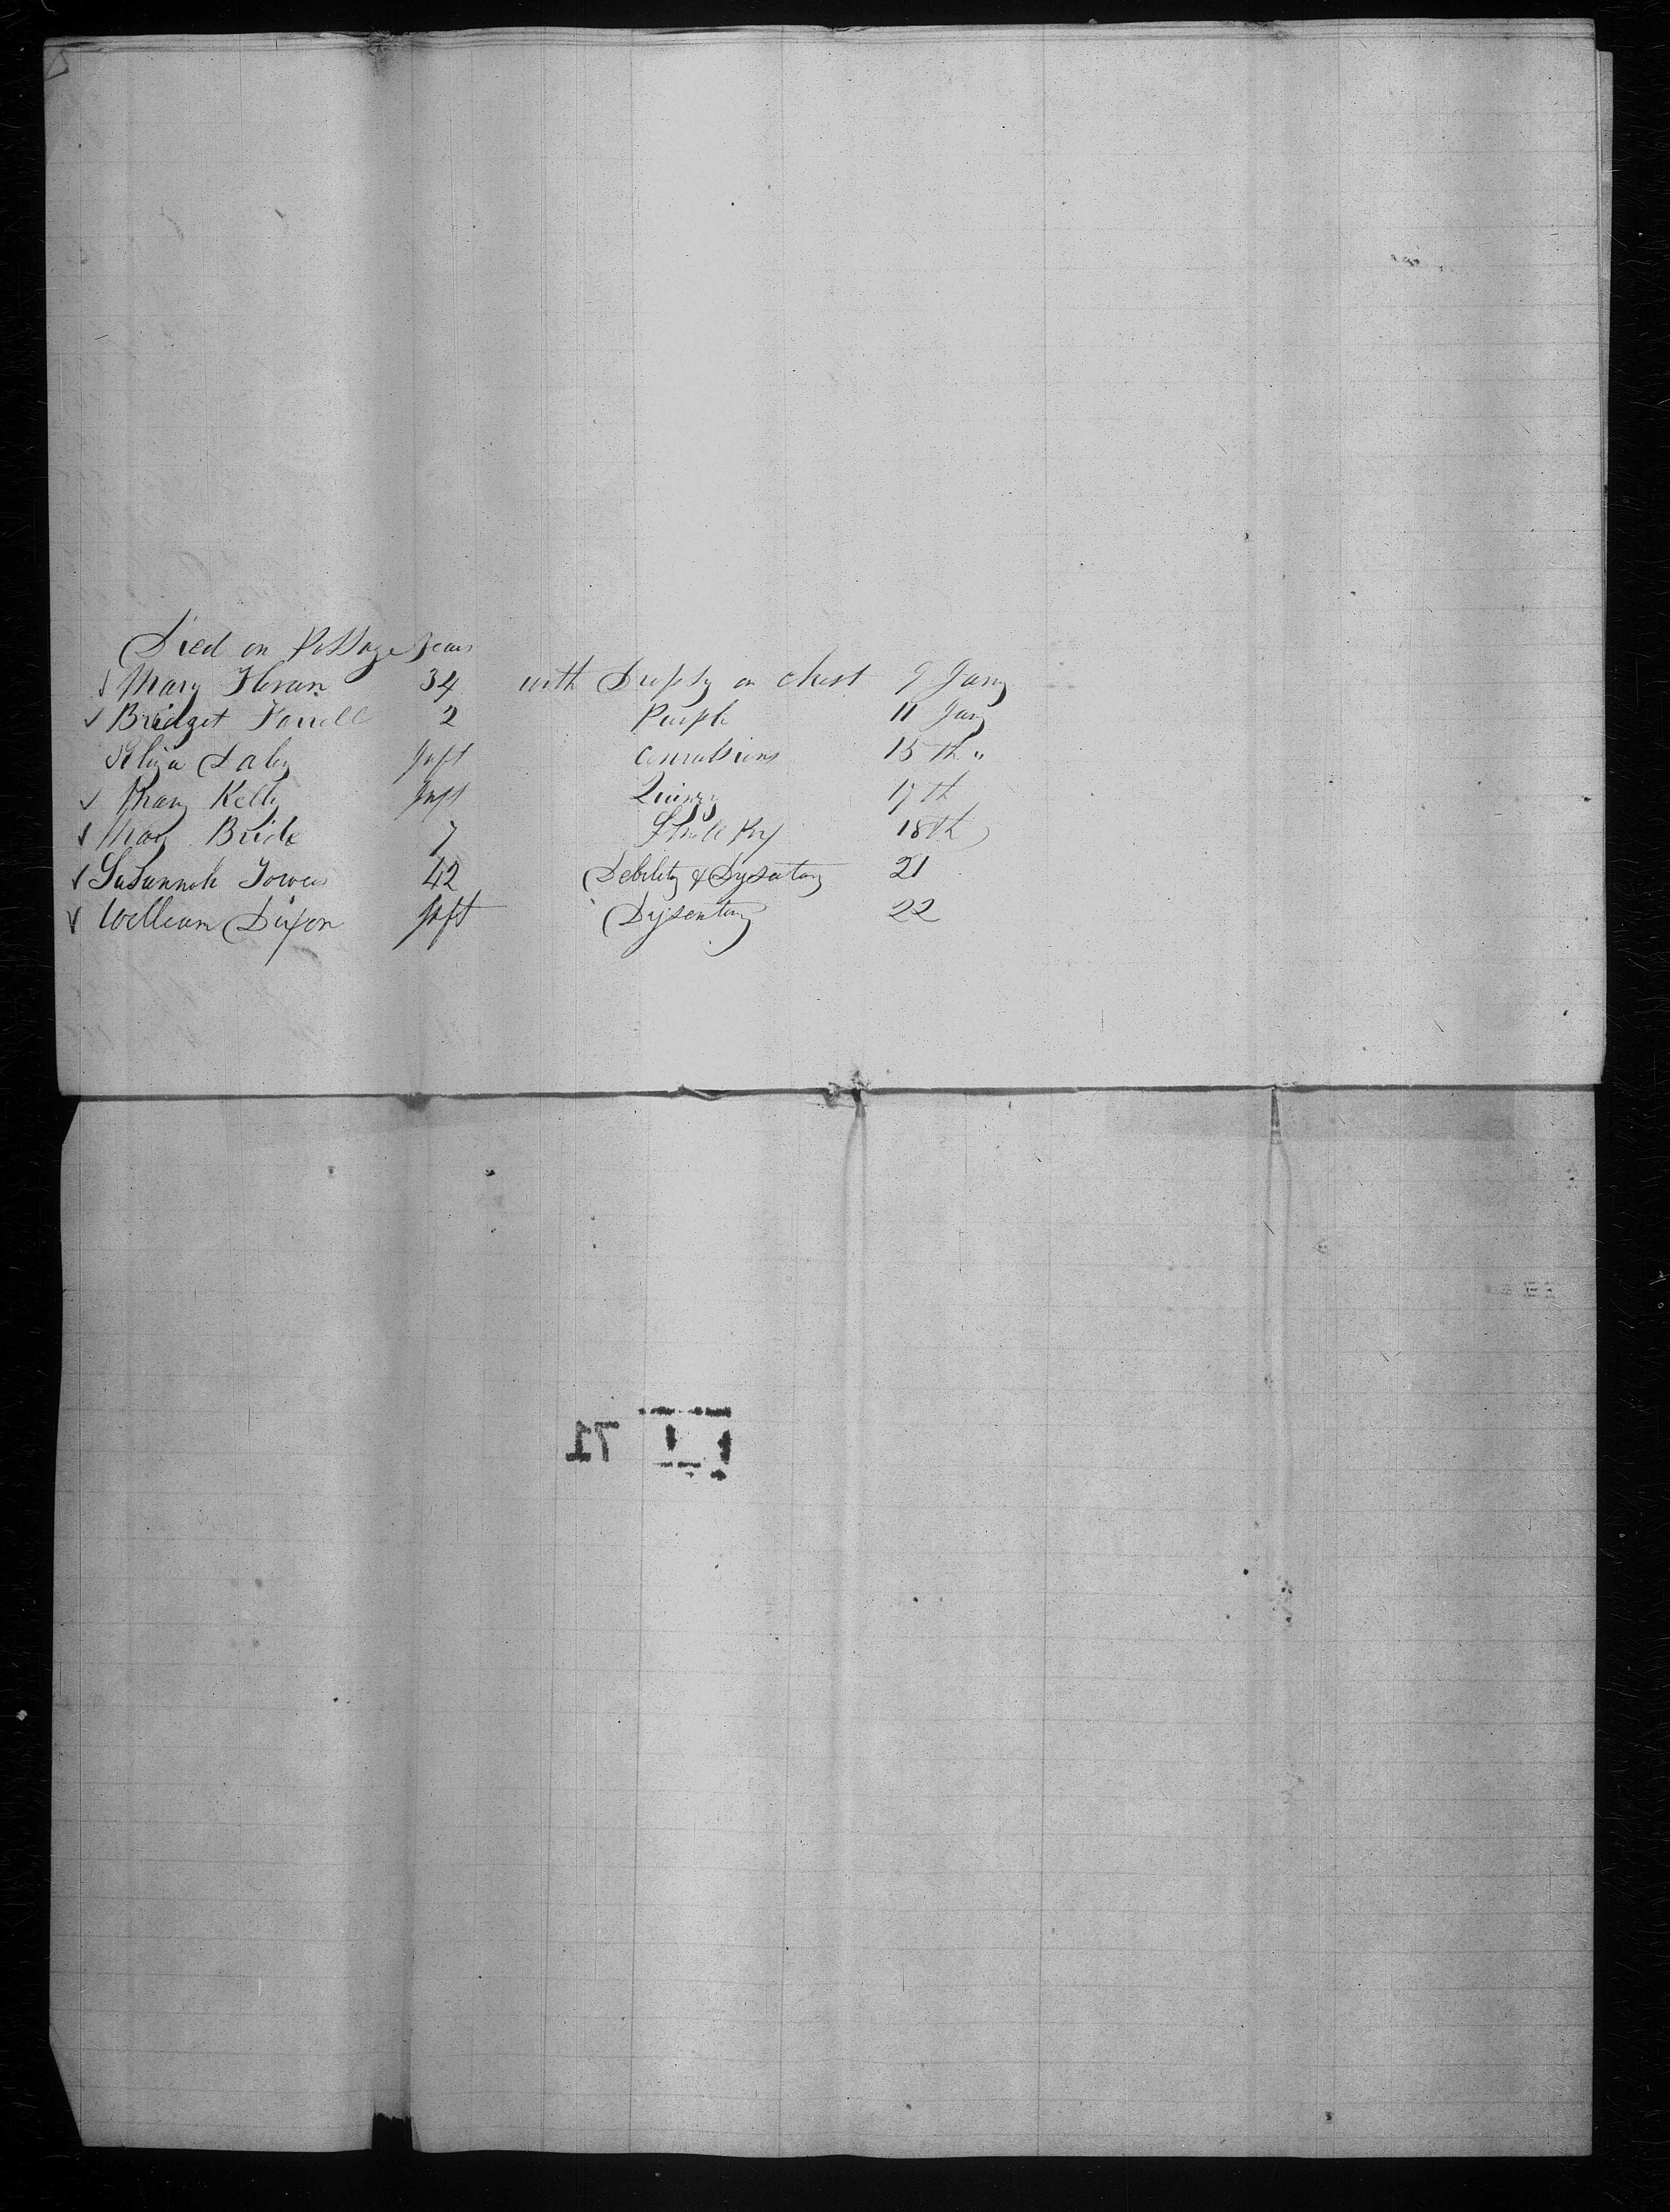 Died on Passage years
Mary Horan 34 with Dropsy on chest 9 Jany
Bridget Farrell 2 Purple 11 Jany
Eliza Daley Inft convulsions 15th "
Mary Kelly Inft Quinsy 17th
Mary Bride 7 Small Pox 18th
Susannah Towers 42 Debility & Dysentary 21
William Dixon Inft Dysentary 22
71